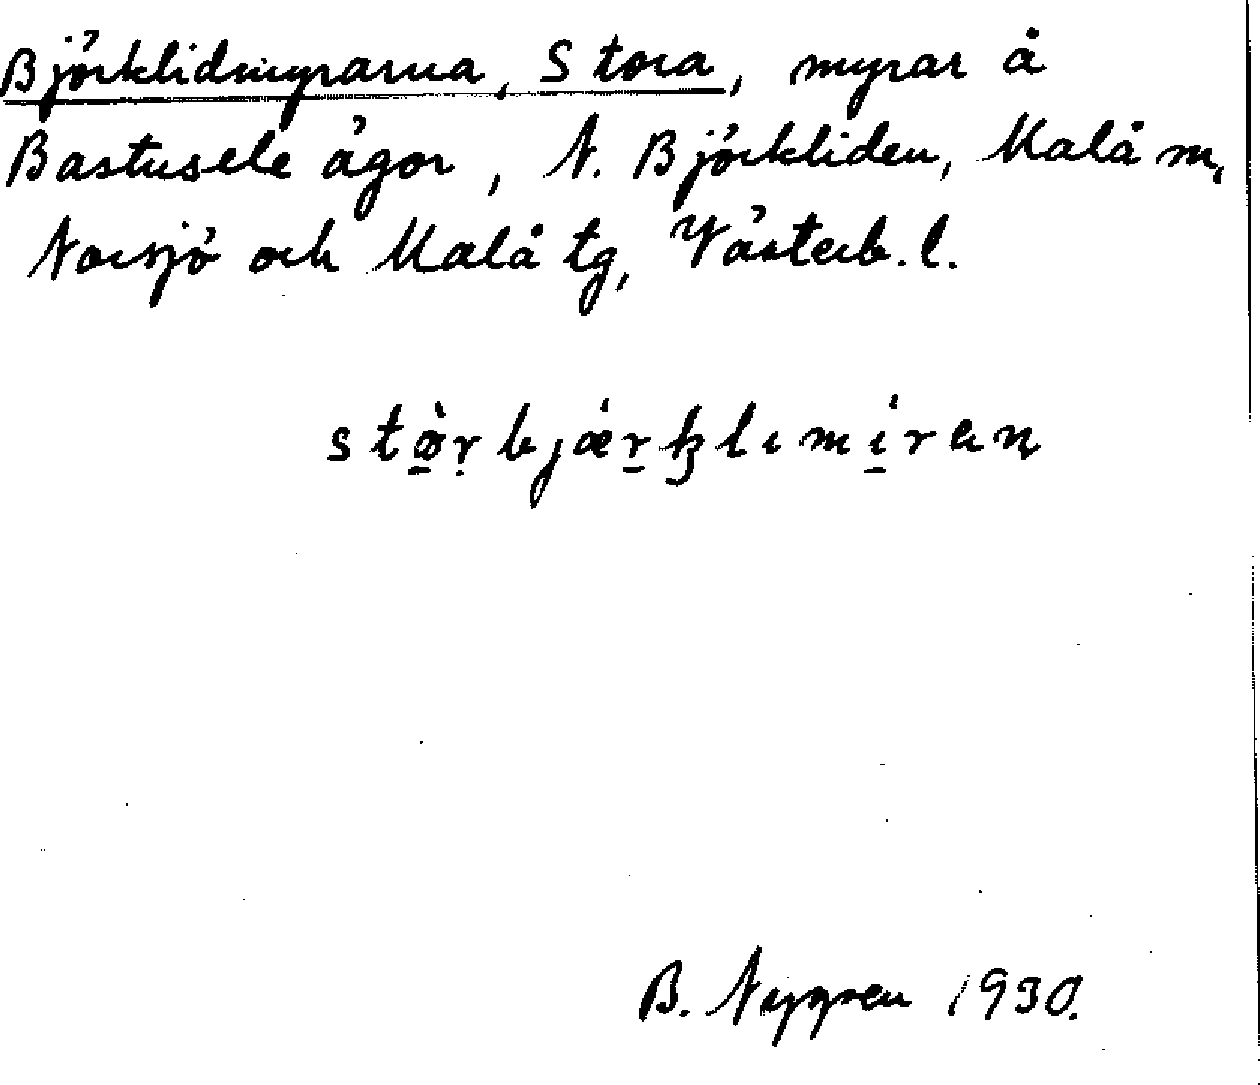 Björklidmyrarna, Stora, myrar å
Bastusele ägor, N. Björkliden, Malå sn,
Norsjö och Malå tg, Västerb. l.
B. Nygren 1930.